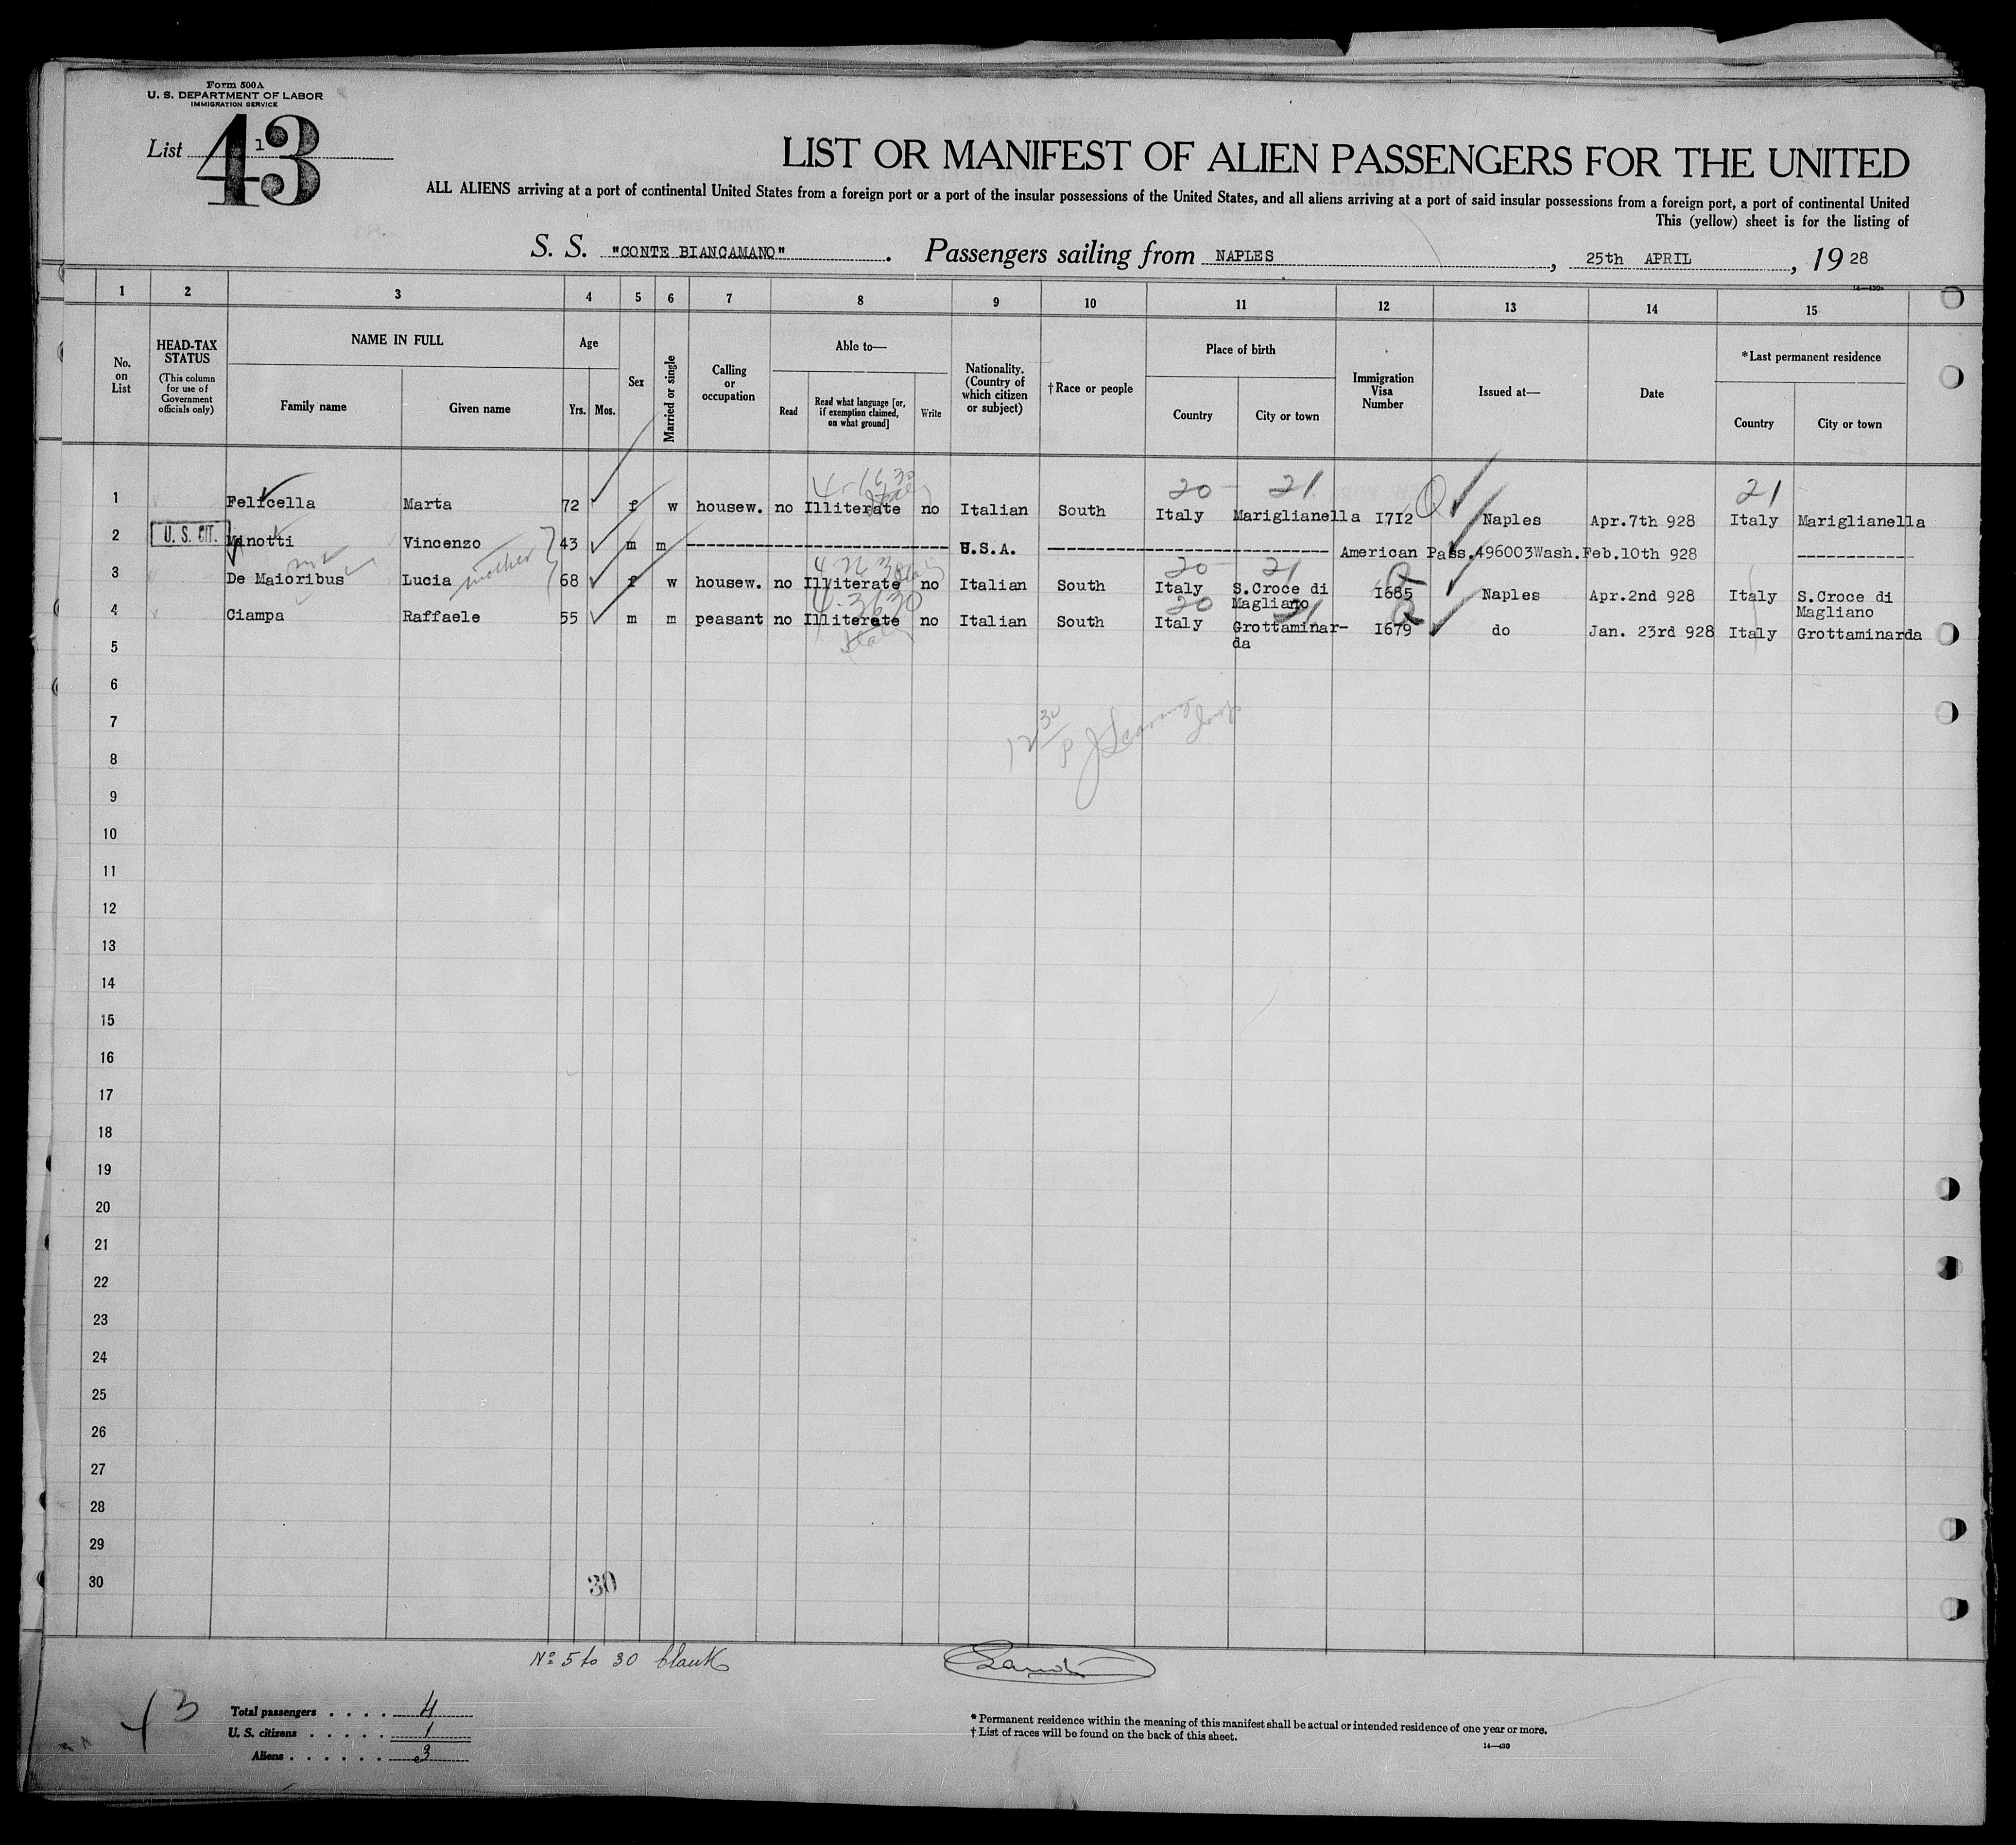 Form 500A
U. S. DEPARTMENT OF LABOR
IMMIGRATION SERVICE
List 1
43
LIST OR MANIFEST OF ALIEN PASSENGERS FOR THE UNITED
ALL ALIENS arriving at a port of continental United States from a foreign port or a port of the insular possessions of the United States, and all aliens arriving at a port of said insular possessions from a foreign port, a port of continental United
This (yellow) sheet is for the listing of
S. S. "CONTE BIANCAMANO". Passengers sailing from NAPLES, 25th APRIL, 19 28
1 2 3 4 5 6 7 8 9 10 11 12 13 14 15
No. on List
HEAD-TAX STATUS
(This column for use of Government officials only)
NAME IN FULL
Family name Given name
Age
Yrs. Mos.
Sex
Married or single
Calling or occupation
Able to—
Read
Read what language [or, if exemption claimed, on what ground]
Write
Nationality. (Country of which citizen or subject)
†Race or people
Place of birth
Country City or town
Immigration Visa Number
Issued at—
Date
*Last permanent residence
Country City or town
4-16 30 Italy 20 21 21
1 Felicella Marta 72 f w housew. no Illiterate no Italian South Italy Mariglianella I7I2 Naples Apr.7th 928 Italy Mariglianella
2 U. S. CIT. Minotti Vincenzo 43 m m U.S.A. American Pass.496003Wash.Feb.10th 928
mother 20 21
3 De Maioribus Lucia 68 f w housew. no Illiterate no Italian South Italy S.Croce di Magliano I685 Naples Apr.2nd 928 Italy S.Croce di Magliano
20 21
4 Ciampa Raffaele 55 m m peasant no Illiterate no Italian South Italy Grottaminar-da I679 do Jan. 23rd 928 Italy Grottaminarda
Italy
5
6
7
8
9
10
11
12
13
14
15
16
17
18
19
20
21
22
23
24
25
26
27
28
29
30 30
Nº 5 to 30 blank
43
Total passengers . . . . 4
U. S. citizens . . . . . 1
Aliens . . . . . . 3
* Permanent residence within the meaning of this manifest shall be actual or intended residence of one year or more.
† List of races will be found on the back of this sheet.
14—430